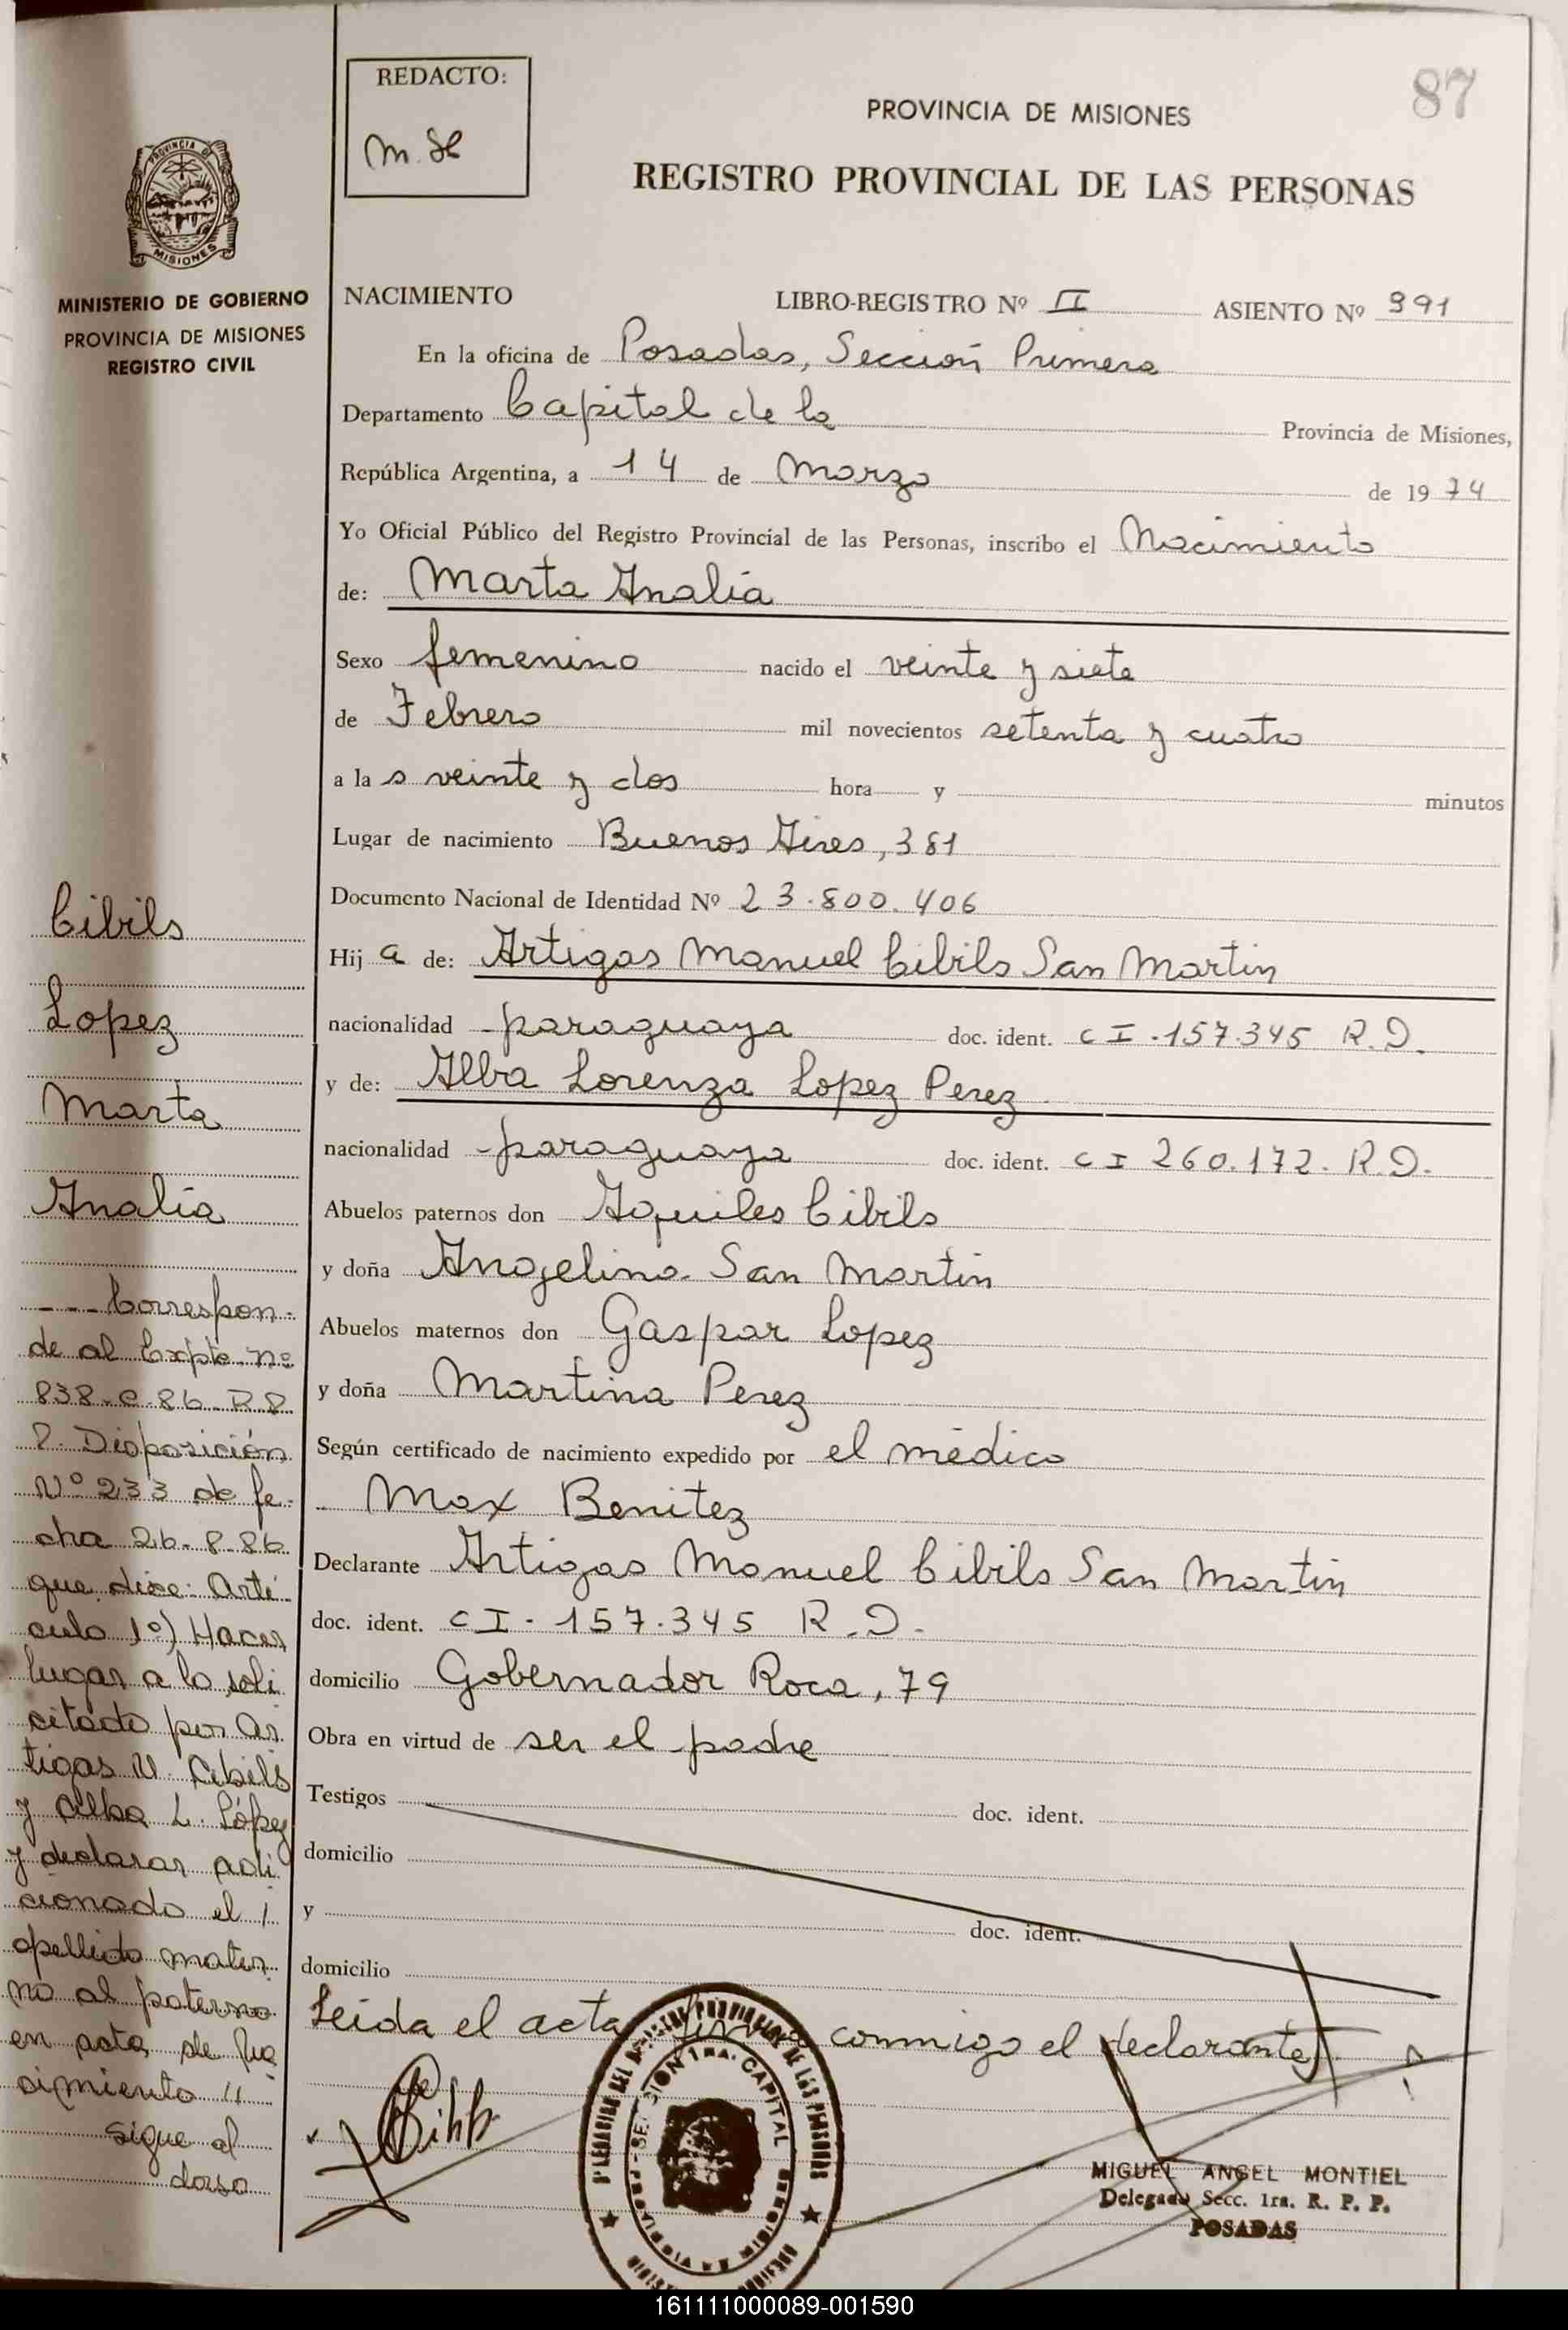 87
REDACTO:
PROVINCIA DE MISIONES
REGISTRO PROVINCIAL DE LAS PERSONAS
PROVINCIA DE
MISIONES
MINISTERIO DE GOBIERNO
PROVINCIA DE MISIONES
REGISTRO CIVIL
NACIMIENTO LIBRO-REGISTRO Nº II ASIENTO Nº 391
En la oficina de Posadas, Sección Primera
Departamento Capital de la Provincia de Misiones,
República Argentina, a 14 de Marzo de 1974
Yo Oficial Público del Registro Provincial de las Personas, inscribo el Nacimiento
de: Marta Analía
Sexo femenino nacido el veinte y siete
de Febrero mil novecientos setenta y cuatro
a la s veinte y dos hora y minutos
Lugar de nacimiento Buenos Aires, 381
Documento Nacional de Identidad Nº 23.800.406
Hij a de: Artigas Manuel Cibils San Martin
nacionalidad paraguaya doc. ident. C I. 157.345 R.D.
y de: Alba Lorenza Lopez Perez
nacionalidad paraguaya doc. ident. C I 260.172. R.D.
Abuelos paternos don Aquiles Cibils
y doña Angelina San Martin
Abuelos maternos don Gaspar Lopez
y doña Martina Perez
Según certificado de nacimiento expedido por el médico
Max Benitez
Declarante Artigas Manuel Cibils San Martin
doc. ident. C I. 157.345 R.D.
domicilio Gobernador Roca, 79
Obra en virtud de ser el padre
Testigos doc. ident.
domicilio
y doc. ident.
domicilio
Leida el acta, firma conmigo el declarante
MIGUEL ANGEL MONTIEL
Delegado Secc. 1ra. R. P. P.
POSADAS
Cibils
Lopez
Marta
Analía
---Correspon-
de al Expte. nº
838-C-86-R.P.
P. Disposición
Nº 233 de fe-
cha 26-8-86
que dice: Artí-
culo 1º) Hacer
lugar a lo soli
citado por Ar
tigas M. Cibils
y Alba L. López
y declarar adi
cionado el
apellido mater
no al paterno
en acta de na
cimiento
sigue al
dorso
SECCION 1RA. CAPITAL
161111000089-001590